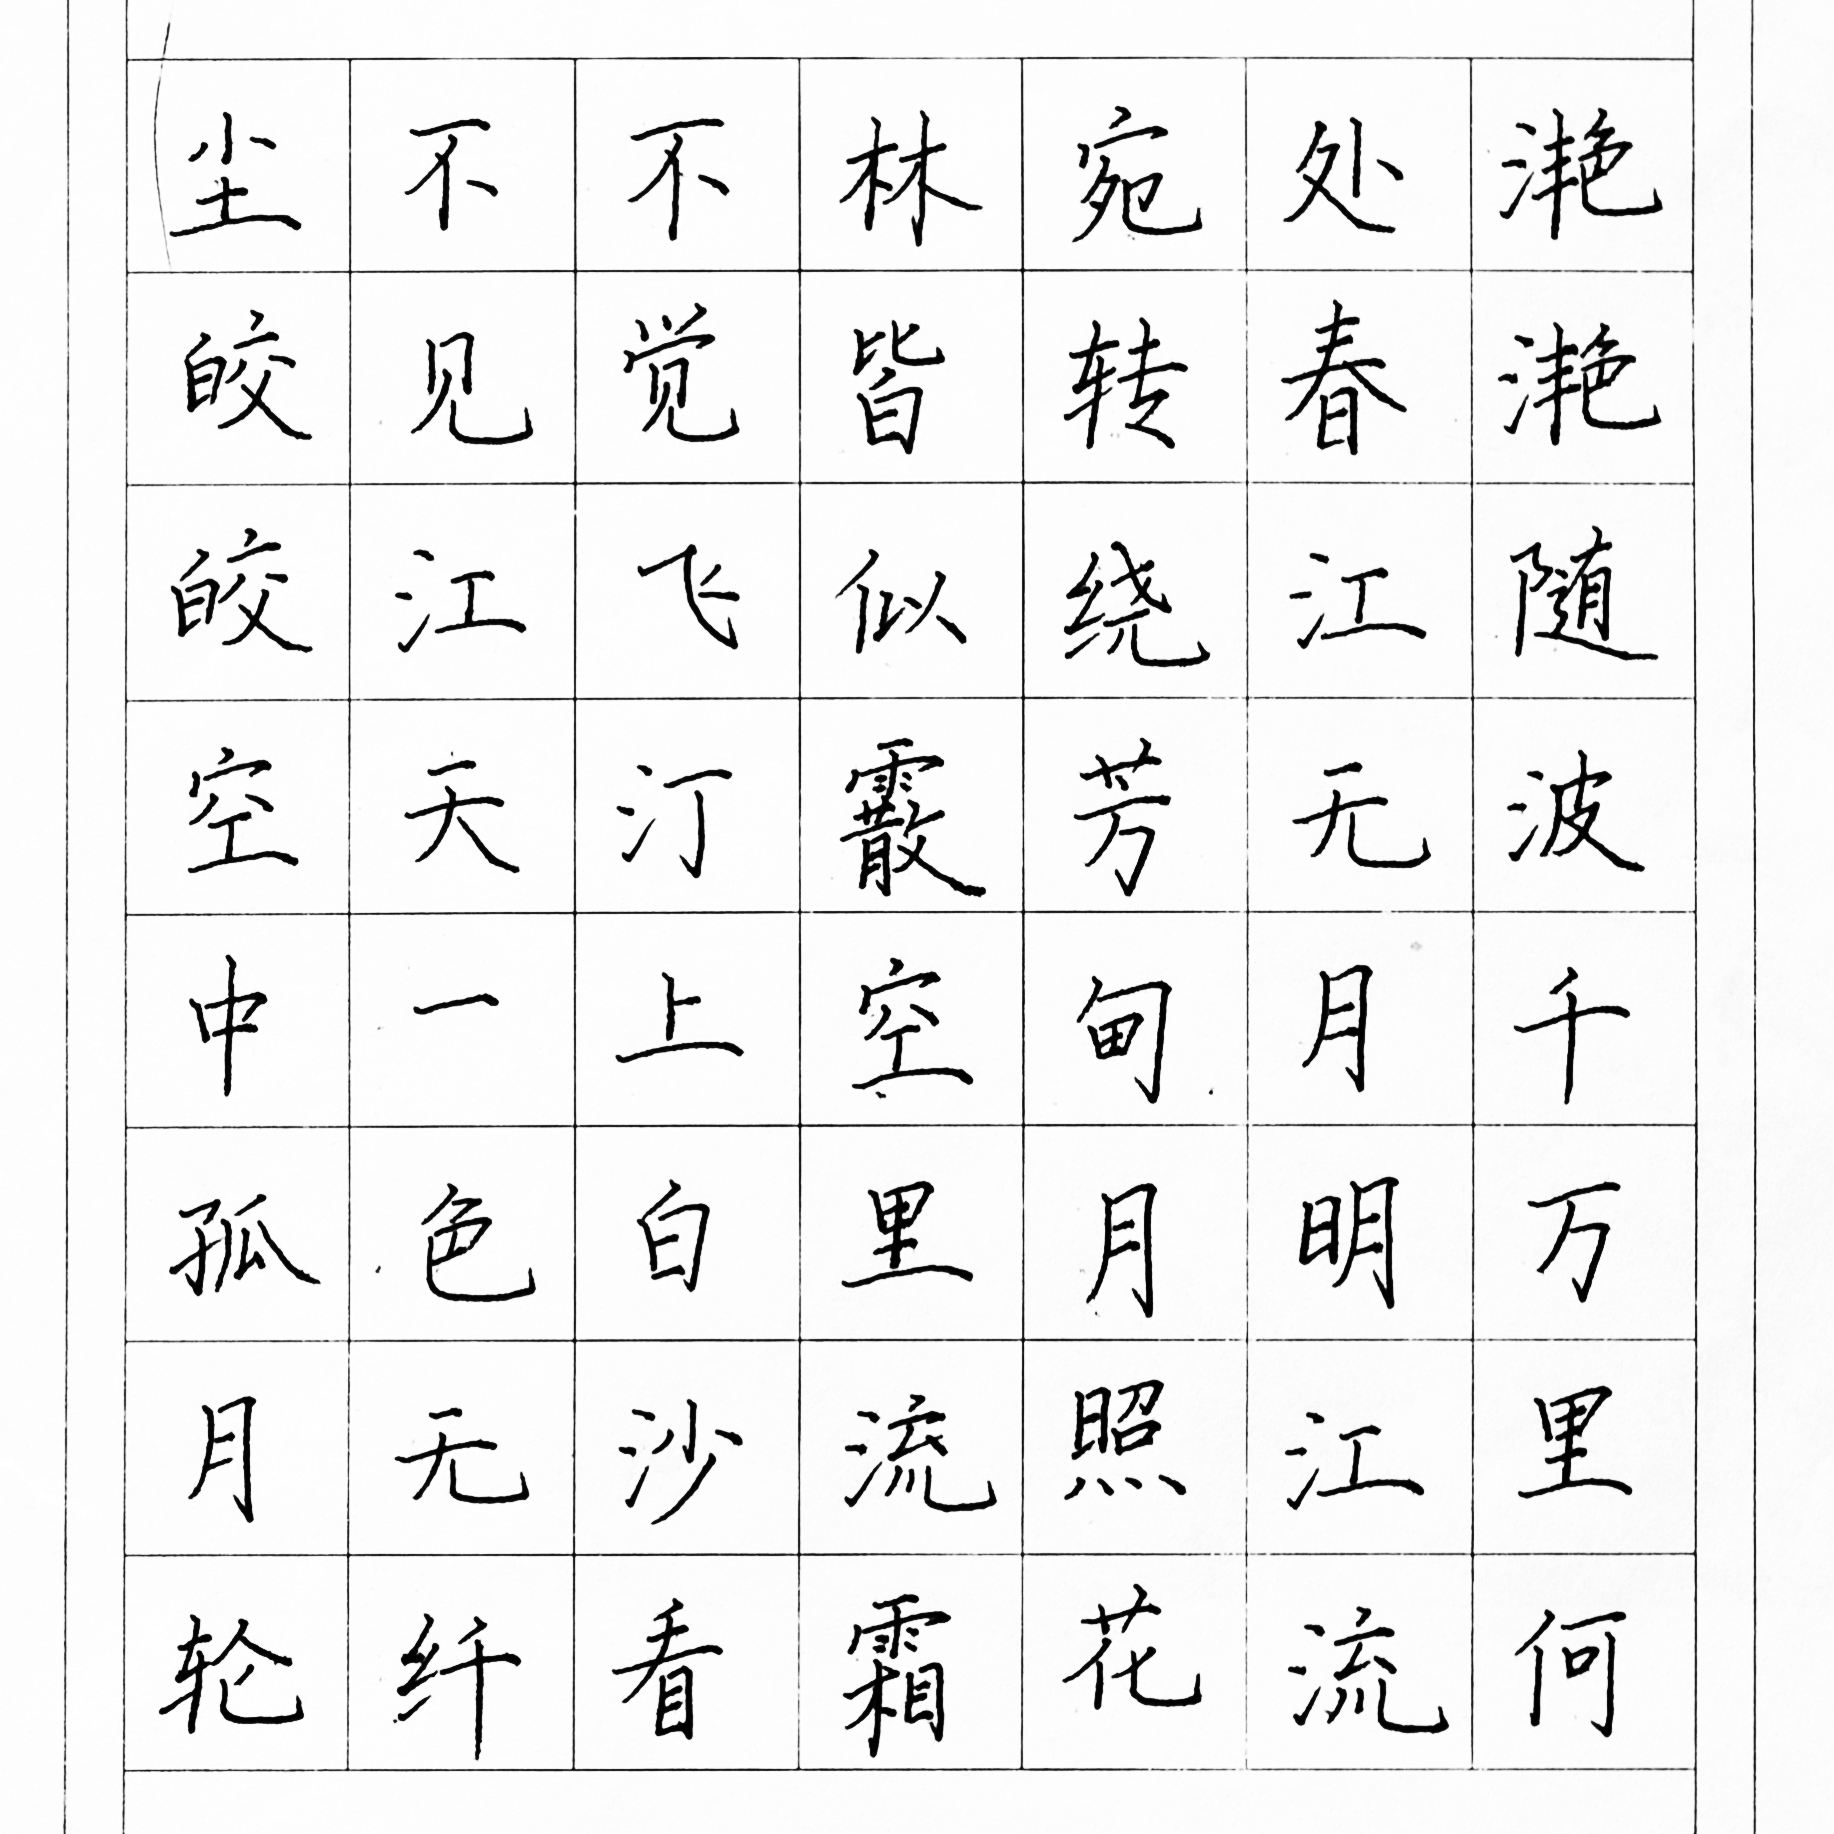 滟滟随波千万里何
处春江无月明江流
宛转绕芳甸月照花
林皆似霰空里流霜
不觉飞汀上白沙看
不见江天一色无纤
尘皎皎空中孤月轮